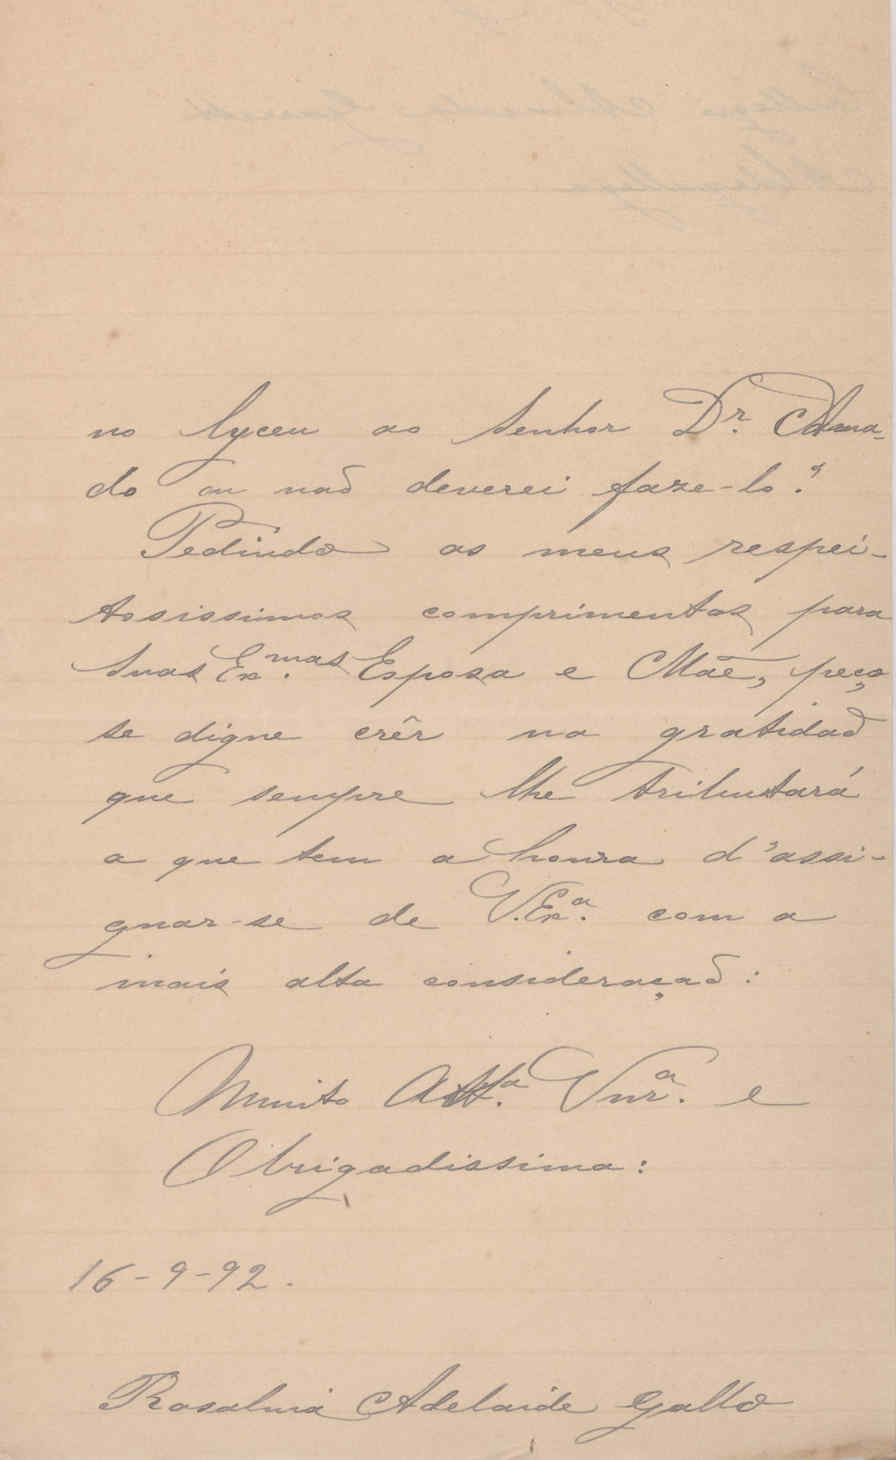 no lyceu ao Senhor Dr. Ama-
do ou naõ deverei faze-lo?
Pedindo os meus respei-
tosissimos comprimentos para
Suas Ex.mas Esposa e Mãe, peço
se digne crêr na gratidaõ
que sempre lhe tributará
a que tem a honra d'assi-
gnar-se de V. Exa. com a
mais alta consideraçaõ:
Muito Att.da Vnr.a e
Obrigadissima:
16-9-92.
Rosalina Adelaide Gallo